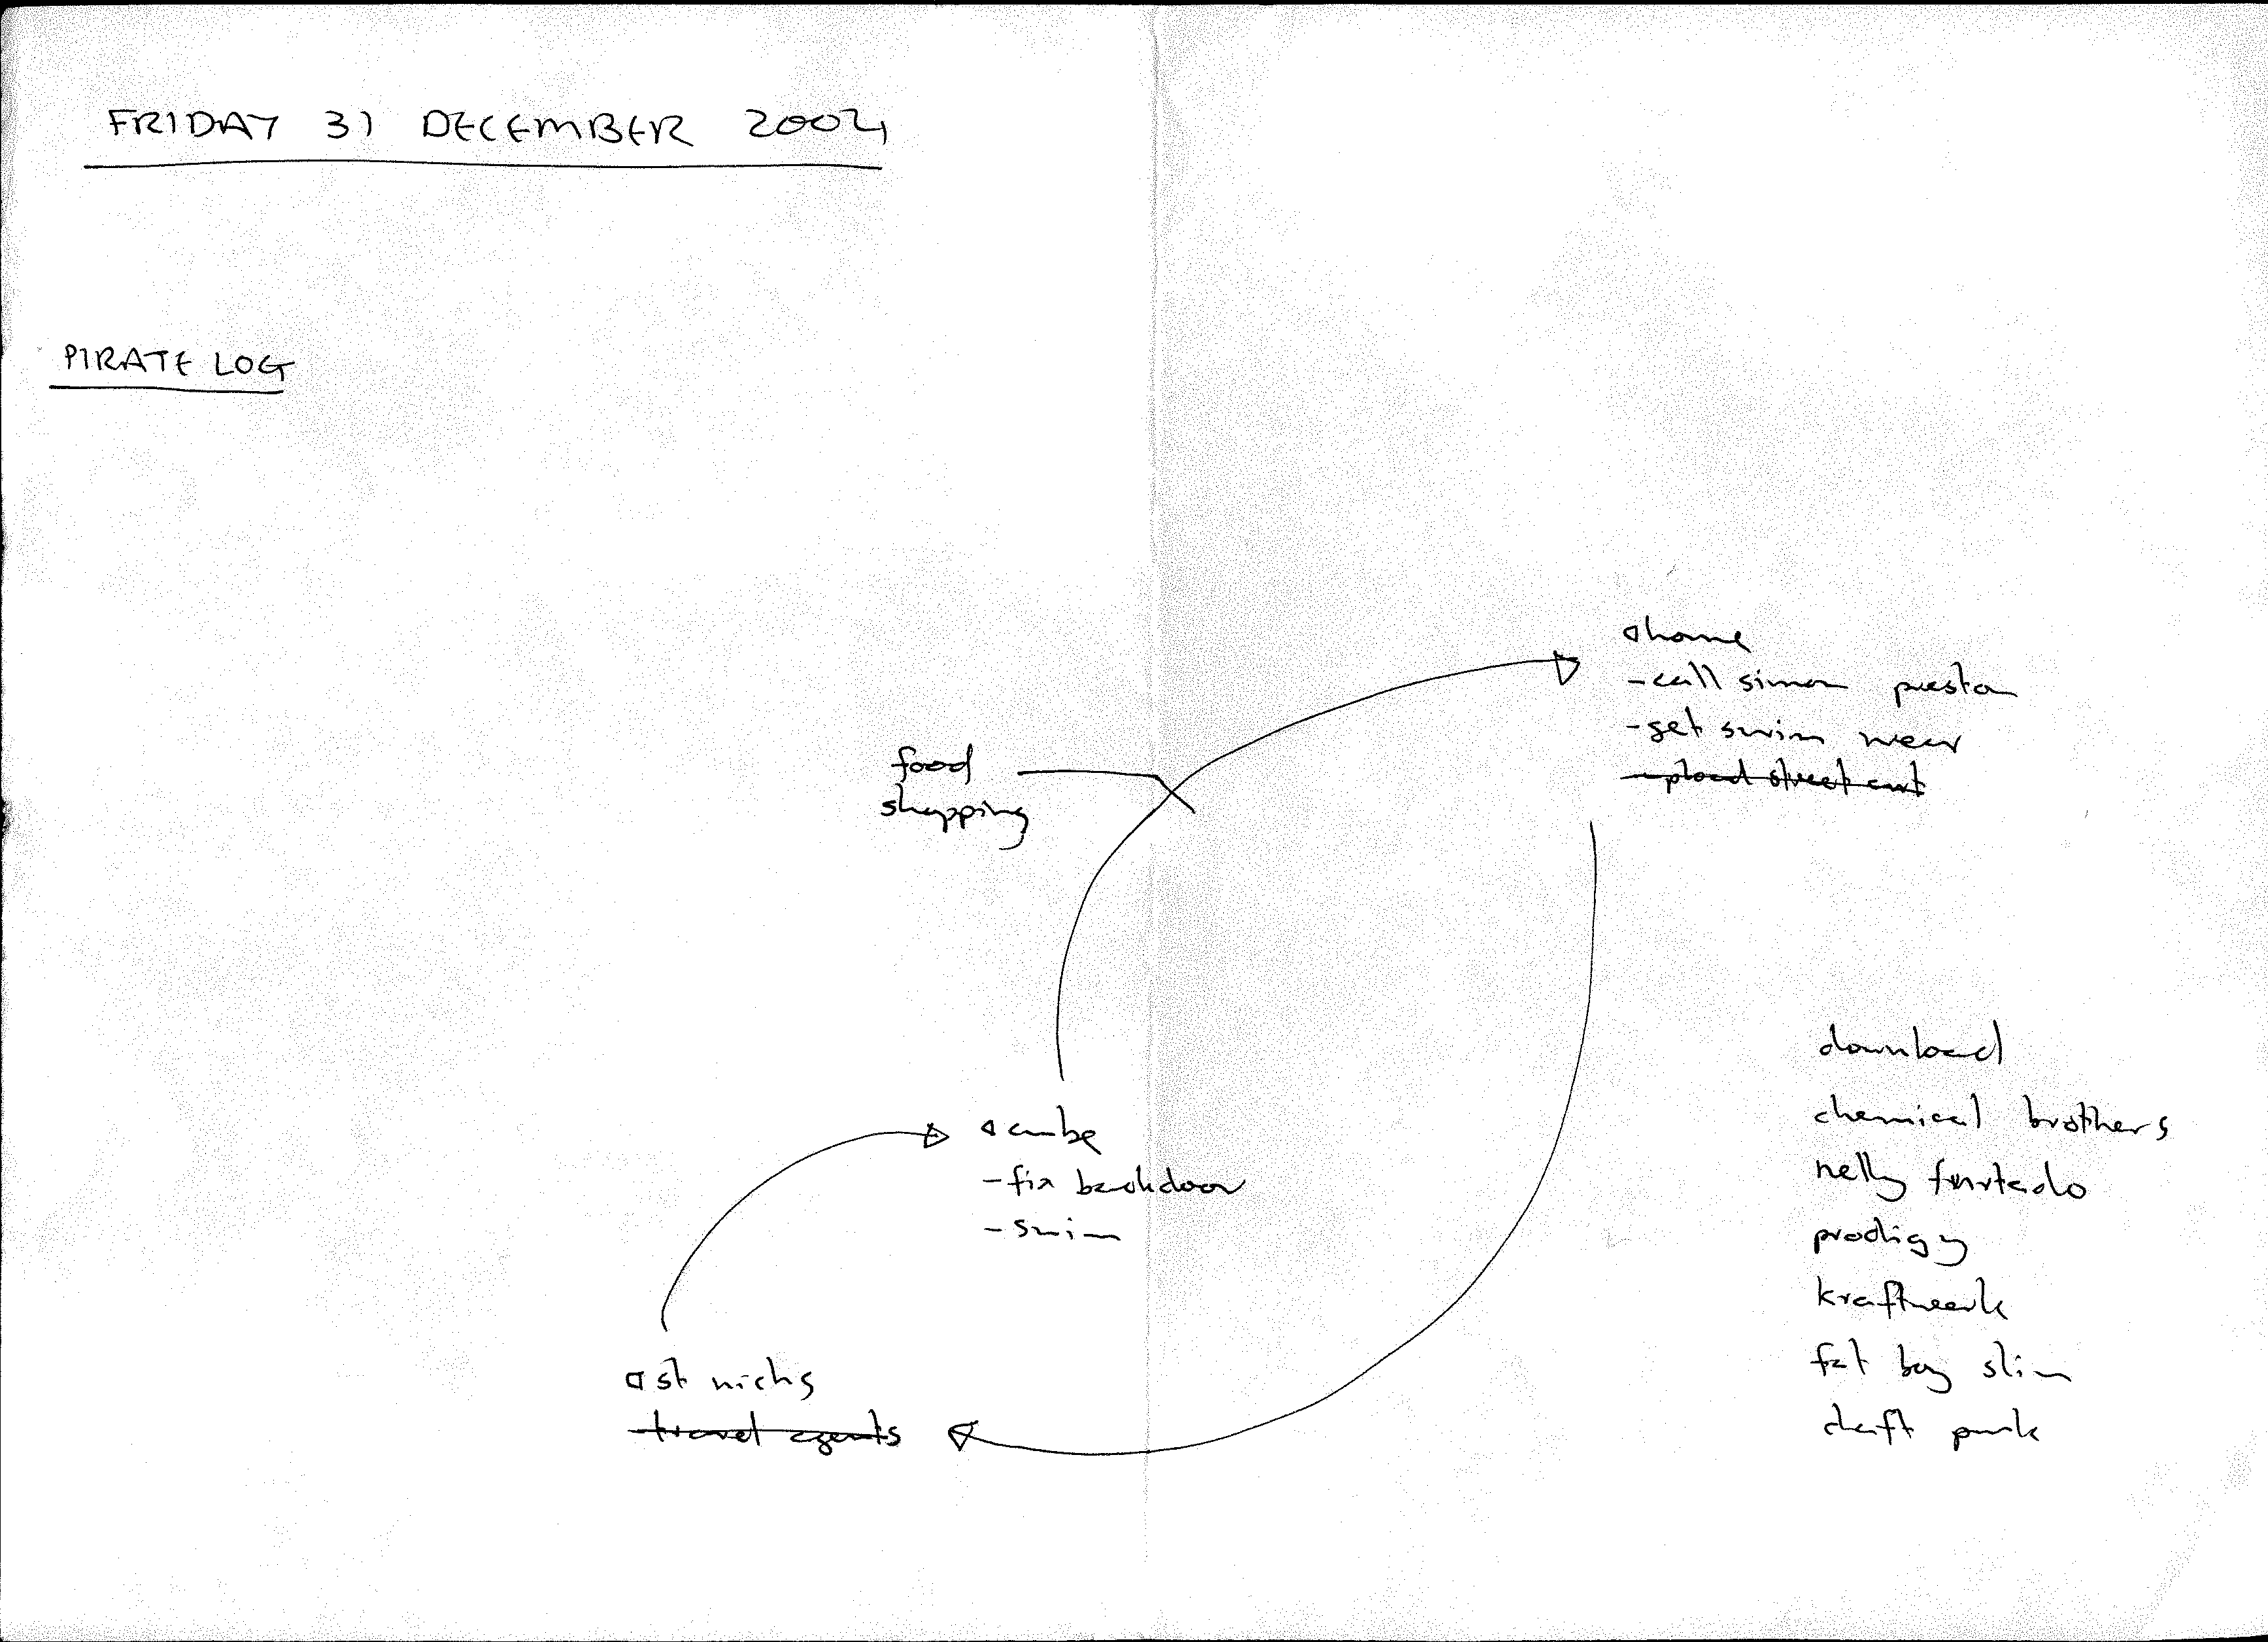 FRIDAY 31 DECEMBER 2004
PIRATE LOG
home
-call simon preston
-get swim wear
-upload street art
food
shopping
cube
-fix backdoor
-swim
st nichs
-travel agents
download
chemical brothers
nelly furtado
prodigy
kraftwerk
fat boy slim
daft punk